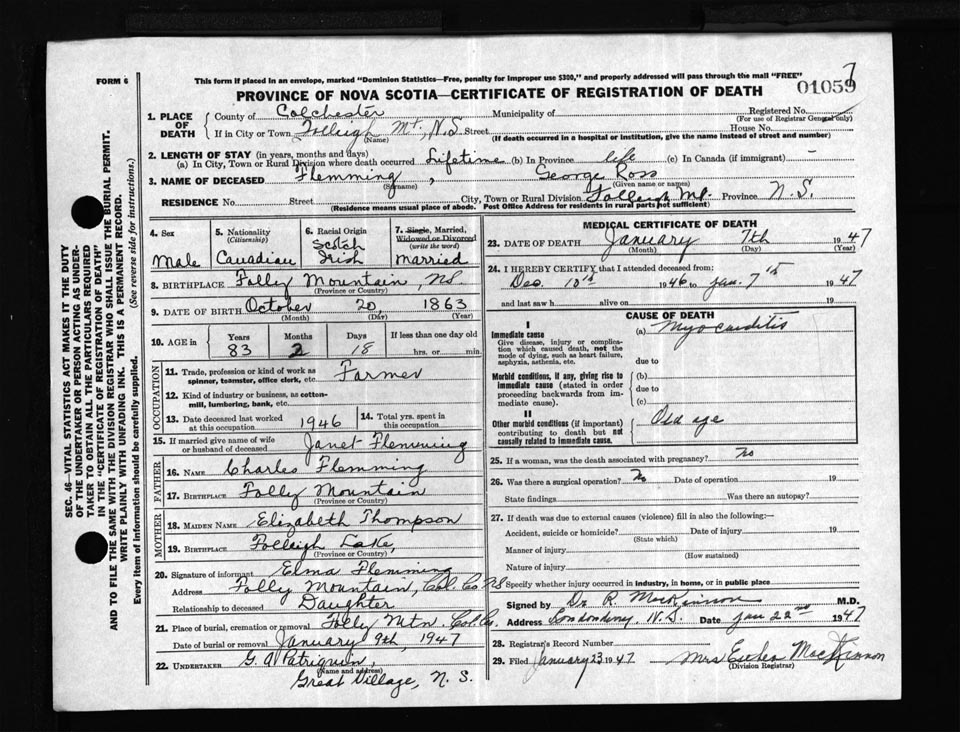 FORM 6
This form if placed in an envelope, marked "Dominion Statistics—Free, penalty for improper use $300," and properly addressed will pass through the mail "FREE"
7
01059
PROVINCE OF NOVA SCOTIA—CERTIFICATE OF REGISTRATION OF DEATH
1. PLACE OF DEATH
County of Colchester Municipality of Registered No.
(For use of Registrar General only)
If in City or Town Folleigh Mt, N.S. Street House No.
(Name) (If death occurred in a hospital or institution, give the name instead of street and number)
2. LENGTH OF STAY (in years, months and days)
(a) In City, Town or Rural Division where death occurred Lifetime (b) In Province life (c) In Canada (if immigrant) —
3. NAME OF DECEASED Flemming, George Ross
(Surname) (Given name or names)
RESIDENCE No. Street City, Town or Rural Division Folleigh Mt. Province N.S.
(Residence means usual place of abode. Post Office Address for residents in rural parts not sufficient)
SEC. 46–VITAL STATISTICS ACT MAKES IT THE DUTY
OF THE UNDERTAKER OR PERSON ACTING AS UNDER-
TAKER TO OBTAIN ALL THE PARTICULARS REQUIRED
IN THE "CERTIFICATE OF REGISTRATION OF DEATH"
AND TO FILE THE SAME WITH THE DIVISION REGISTRAR WHO SHALL ISSUE THE BURIAL PERMIT.
WRITE PLAINLY WITH UNFADING INK. THIS IS A PERMANENT RECORD.
Every item of information should be carefully supplied. (See reverse side for instructions.)
4. Sex
Male
5. Nationality
(Citizenship)
Canadian
6. Racial Origin
Scotch
Irish
7. Single, Married,
Widowed or Divorced
(write the word)
married
8. BIRTHPLACE Folly Mountain, NS.
(Province or Country)
9. DATE OF BIRTH October 20, 1863
(Month) (Day) (Year)
10. AGE in Years Months Days If less than one day old
83 2 18 hrs. or min.
OCCUPATION
11. Trade, profession or kind of work as
spinner, teamster, office clerk, etc. Farmer
12. Kind of industry or business, as cotton-
mill, lumbering, bank, etc.
13. Date deceased last worked
at this occupation 1946
14. Total yrs. spent in
this occupation
15. If married give name of wife
or husband of deceased Janet Flemming
FATHER
16. NAME Charles Flemming
17. BIRTHPLACE Folly Mountain
(Province or Country)
MOTHER
18. MAIDEN NAME Elizabeth Thompson
19. BIRTHPLACE Folleigh Lake,
(Province or Country)
20. Signature of informant Elma Flemming
Address Folly Mountain, Col. Co NS
Relationship to deceased Daughter
21. Place of burial, cremation or removal Folly Mtn. Col. Co.
Date of burial or removal January 9th, 1947
22. UNDERTAKER G. A Patriquin,
(Name and address)
Great Village, N. S.
MEDICAL CERTIFICATE OF DEATH
23. DATE OF DEATH January 7th 1947
(Month) (Day) (Year)
24. I HEREBY CERTIFY that I attended deceased from:
Dec. 10th 1946 to Jan. 7th 1947
and last saw h alive on 19
CAUSE OF DEATH
I
Immediate cause
Give disease, injury or complica-
tion which caused death, not the
mode of dying, such as heart failure,
asphyxia, asthenia, etc.
(a) Myocarditis
due to
Morbid conditions, if any, giving rise to
immediate cause (stated in order
proceeding backwards from im-
mediate cause).
(b)
due to
(c)
II
Other morbid conditions (if important)
contributing to death but not
causally related to immediate cause.
Old age
25. If a woman, was the death associated with pregnancy? no
26. Was there a surgical operation? No Date of operation 19
State findings Was there an autopsy?
27. If death was due to external causes (violence) fill in also the following:—
Accident, suicide or homicide? Date of injury 19
(State which)
Manner of injury
(How sustained)
Nature of injury
Specify whether injury occurred in industry, in home, or in public place
Signed by Dr R. MacKinnon M.D.
Address Londonderry, N.S. Date Jan 22nd 1947
28. Registrar's Record Number
29. Filed January 23 1947 Mrs Esther MacKinnon
(Division Registrar)